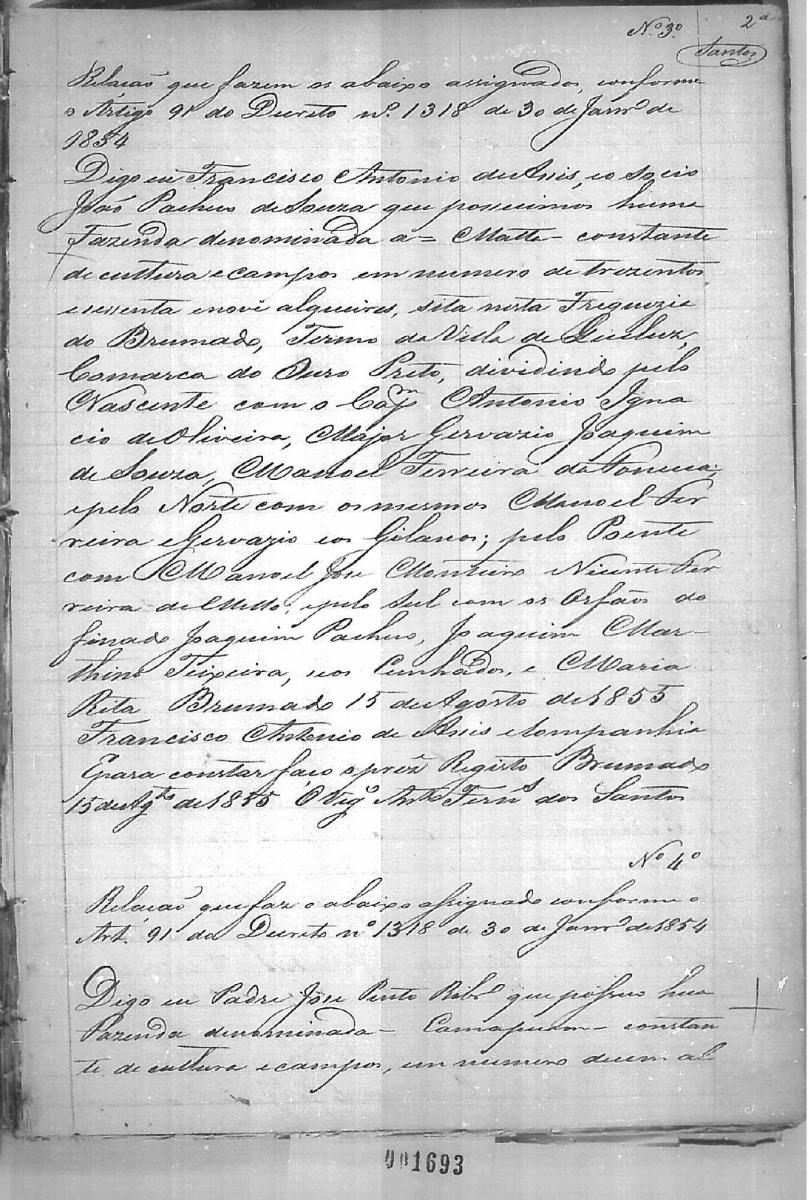 Nº 3º
2ª
Santos
Relacaõ que fazem os abaixo assignados, conforme
o Artigo 91 do Decreto nº. 1318 de 30 de Janrº de
1854
Digo eu Francisco Antonio de Assis, e o socio
Joaõ Pacheco de Souza que possuimos huma
Fazenda denominada a = Matta - constante
de cultura e campos em numero de trezentos
e sessenta e nove alqueires, sita nesta Freguezia
do Brumado, Termo da Villa de Queluz,
Comarca do Ouro Preto, dividindo pelo
Nascente com o Capm Antonio Igna
cio de Oliveira, Major Gervazio Joaquim
de Souza, Manoel Ferreira da Fonseca,
e pelo Norte com os mesmos Manoel Fer
reira e Gervazio e os Gôlanos; pelo Poente
com Manoel Jose Monteiro e Vicente Fer
reira de Mello, e pelo Sul com os Orfãos do
finado Joaquim Pacheco, Joaquim Mar-
thins Teixeira, seos Cunhados, e Maria
Rita Brumado 15 de Agosto de 1855
Francisco Antonio de Assis e Companhia
E para constar faço o prezẽ Registo Brumado
15 de Agto de 1855 O Vigº Antº Ferns dos Santos
Nº 4º
Relacaõ que faz o abaixo assignado conforme o
Art. 91 do Decreto nº 1318 de 30 de Janrº de 1854
Digo eu Padre Jose Pinto Ribrº que possuo hua
Fazenda denominada - Camapuam - constan
te de cultura e campos, em numero de um al
001693